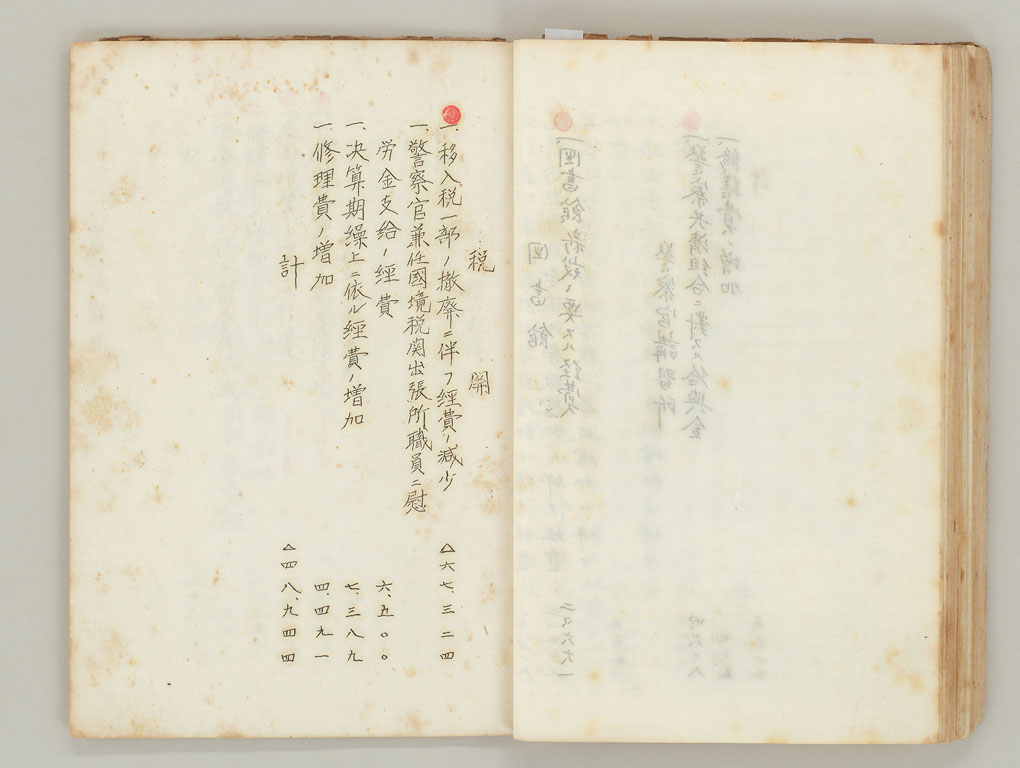 税関
一、移入税一部ノ撤廃ニ伴フ經費ノ減少 △六七、三二四
一、警察官兼任國境税関出張所職員ニ慰
労金支給ノ經費 六、五〇〇
一、決算期繰上ニ依ル經費ノ増加 七、三八九
一、修理費ノ増加 四、四九一
計 △四八、九四四